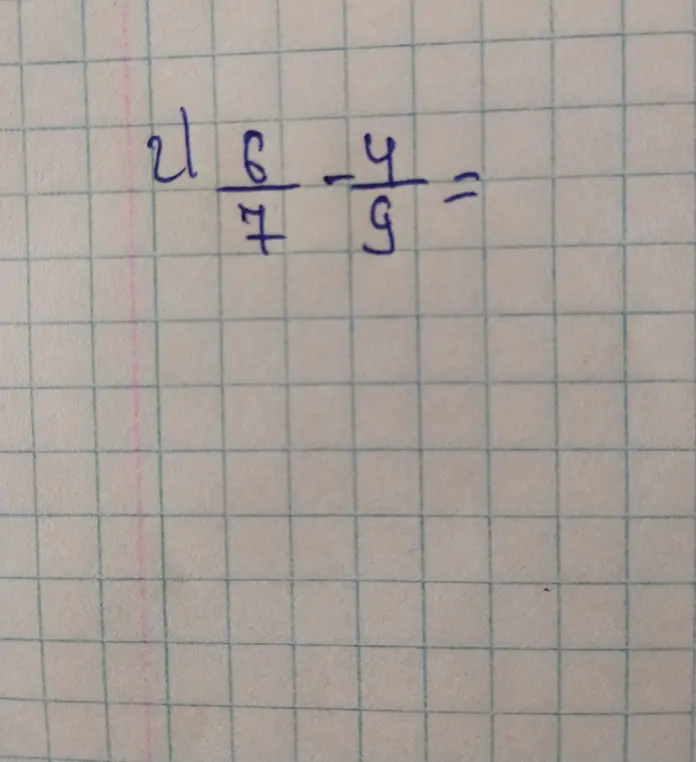 г) 6/7 - 4/9 =